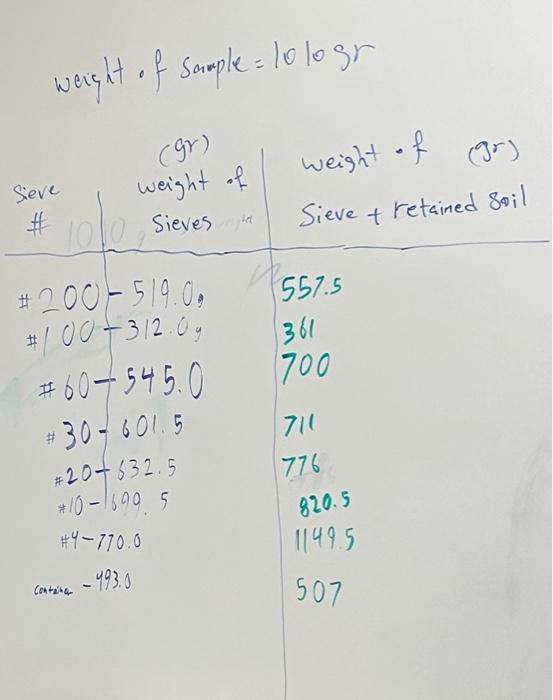 weight of sample = 1010gr
Sieve # | (gr) weight of Sieves | weight of (gr) Sieve + retained Soil
#200 - 519.0g 557.5
#100 - 312.0g 361
#60 - 545.0 700
#30 - 601.5 711
#20 - 632.5 776
#10 - 699.5 820.5
#4 - 770.0 1149.5
Container - 493.0 507